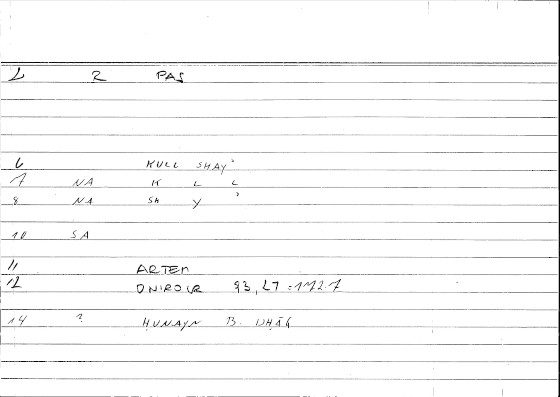 2 R PAS
6 KULL SHAYʾ
7 NA K L L
8 NA SH Y ʾ
10 SA
11 ARTEM
12 ONIROCR 93,27 = 172.7
14 ? ḤUNAYN B. ISḤĀQ